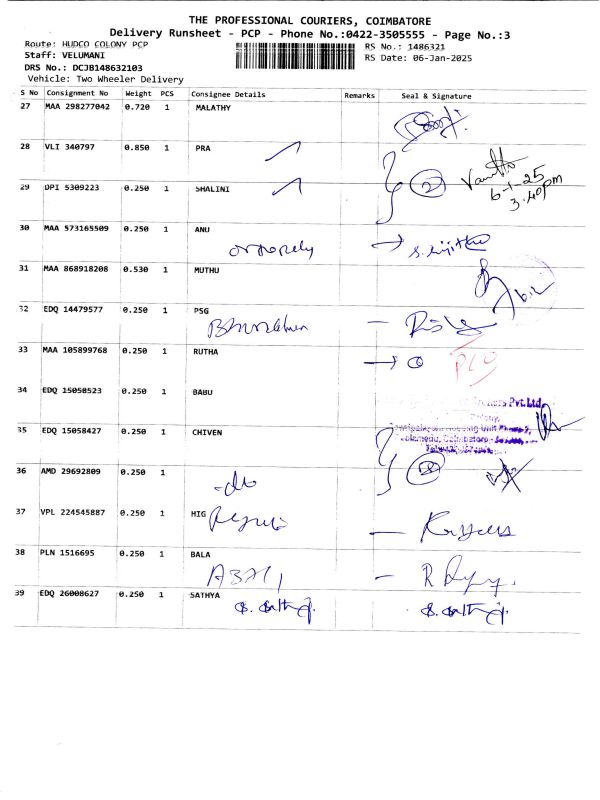 THE PROFESSIONAL COURIERS, COIMBATORE
Delivery Runsheet - PCP - Phone No.:0422-3505555 - Page No.:3
Route: HUDCO COLONY PCP
RS No.: 1486321
Staff: VELUMANI
RS Date: 06-Jan-2025
DRS No.: DCJB148632103
Vehicle: Two Wheeler Delivery
S No Consignment No Weight PCS Consignee Details Remarks Seal & Signature
27 MAA 298277042 0.720 1 MALATHY
28 VLI 340797 0.850 1 PRA
2
6-1-25
3.40pm
29 DPI 5309223 0.250 1 SHALINI
30 MAA 573165509 0.250 1 ANU
31 MAA 868918208 0.530 1 MUTHU
32 EDQ 14479577 0.250 1 PSG
33 MAA 105899768 0.250 1 RUTHA
34 EDQ 15058523 0.250 1 BABU
Pvt.Ltd
35 EDQ 15058427 0.250 1 CHIVEN
Housing Unit Phase-2,
Coimbatore
36 AMD 29692809 0.250 1
37 VPL 224545887 0.250 1 HIG
38 PLN 1516695 0.250 1 BALA
39 EDQ 26008627 0.250 1 SATHYA